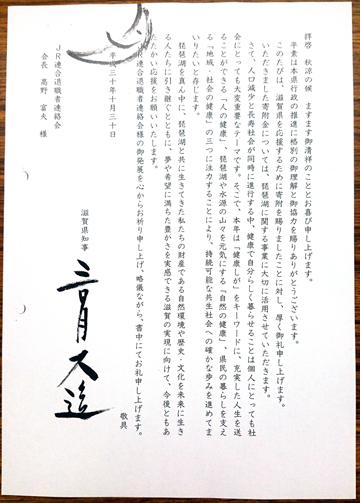 拝啓　秋涼の候　ますます御清祥のこととお喜び申し上げます。
平素は本県行政の推進に格別の御理解と御協力を賜りありがとうございます。
このたびは、滋賀県を応援するために寄附を賜りましたことに対し、厚く御礼申し上げます。
いただきました寄附金については、琵琶湖に関する事業に大切に活用させていただきます。
さて、人口減少と長寿社会が同時に進行する中、健康で自分らしく暮らせることは個人にとっても社
会にとっても大変重要なテーマです。そこで、本年は「健康しが」をキーワードに、充実した人生を送
ることができる「人の健康」、琵琶湖や水源の山々を元気にする「自然の健康」、県民の暮らしを支え
る「地域・社会の健康」の三つに注力することにより、持続可能な共生社会への確かな歩みを進めてま
いりたいと存じます。
琵琶湖を真ん中に、琵琶湖と共に生きてきた私たちの財産である自然環境や歴史・文化を未来に生き
る人たちに引き継ぐとともに、夢や希望に満ちた豊かさを実感できる滋賀の実現に向けて、今後ともあ
たたかい応援をお願いいたします。
ＪＲ連合退職者連絡会様の御発展を心からお祈り申し上げ、略儀ながら、書中にてお礼申し上げます。
敬具
平成三十年十月三十日
滋賀県知事
三日月大造
ＪＲ連合退職者連絡会
会長　高野　富夫　様